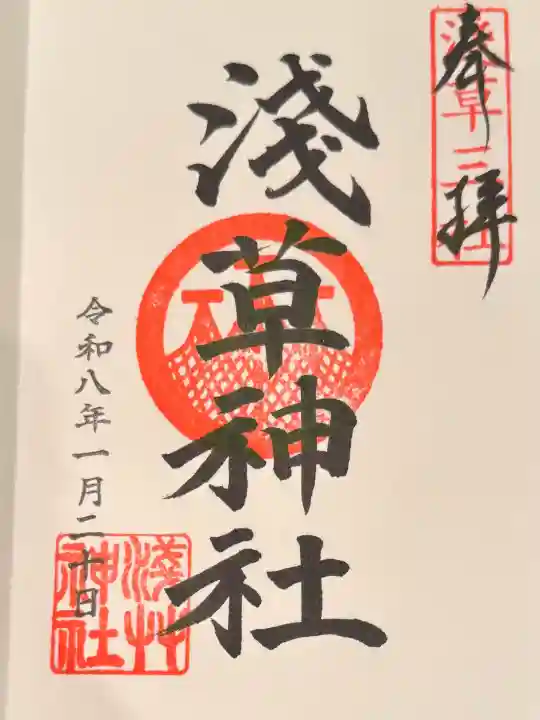 奉拝
淺草三社
淺草神社
令和八年一月二十日
淺草
神社